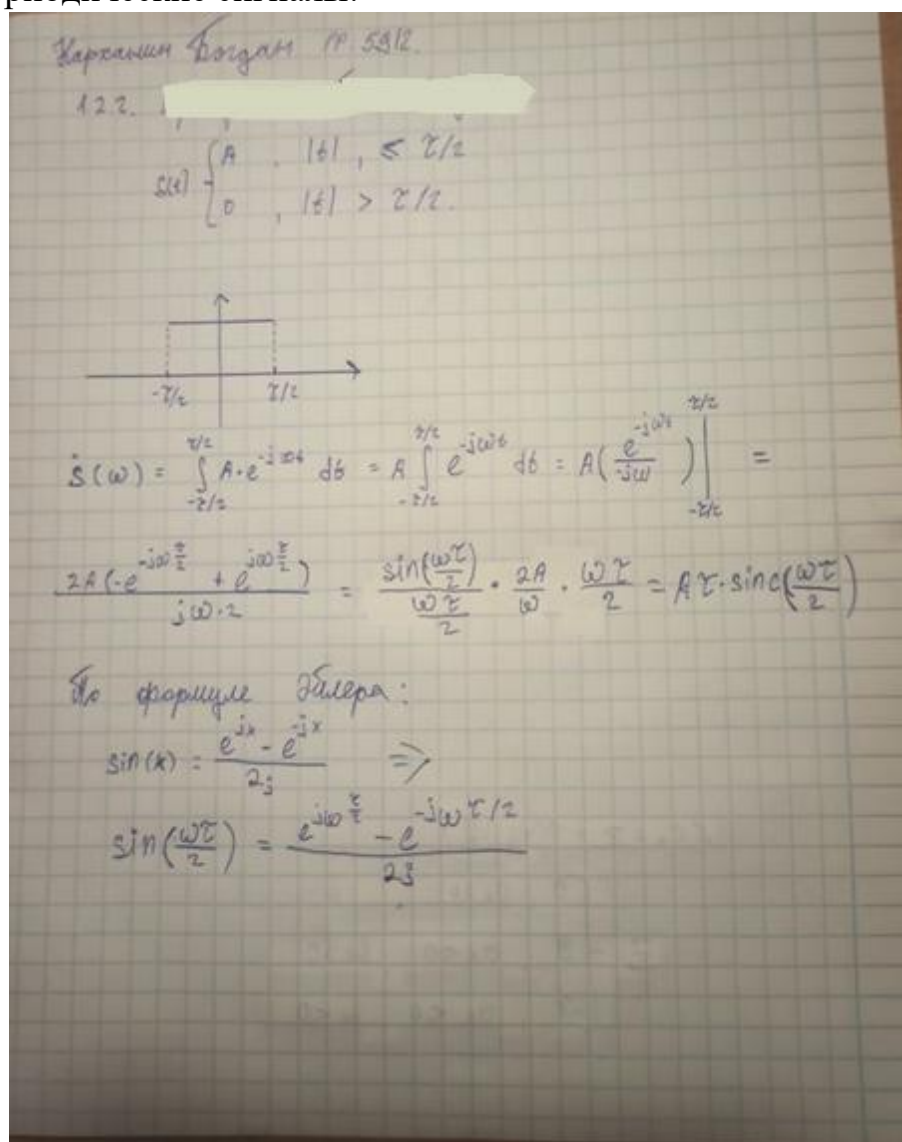 риодические сигналы.
Богдан гр 5912.
1.2.2.
s(t) { A , |t| , ≤ τ/2
0 , |t| > τ/2.
-τ/2 τ/2
ṡ(ω) = ∫_{-τ/2}^{τ/2} A·e^{-jωt} dt = A ∫_{-τ/2}^{τ/2} e^{-jωt} dt = A(e^{-jωt}/-jω)|_{-τ/2}^{τ/2} =
2A(-e^{-jω τ/2} + e^{jω τ/2})/(jω·2) = sin(ωτ/2)/(ωτ/2) · 2A/ω · ωτ/2 = Aτ·sinc(ωτ/2)
По формуле Эйлера:
sin(x) = (e^{jx} - e^{-jx})/2j ⇒
sin(ωτ/2) = (e^{jω τ/2} - e^{-jωτ/2})/2j